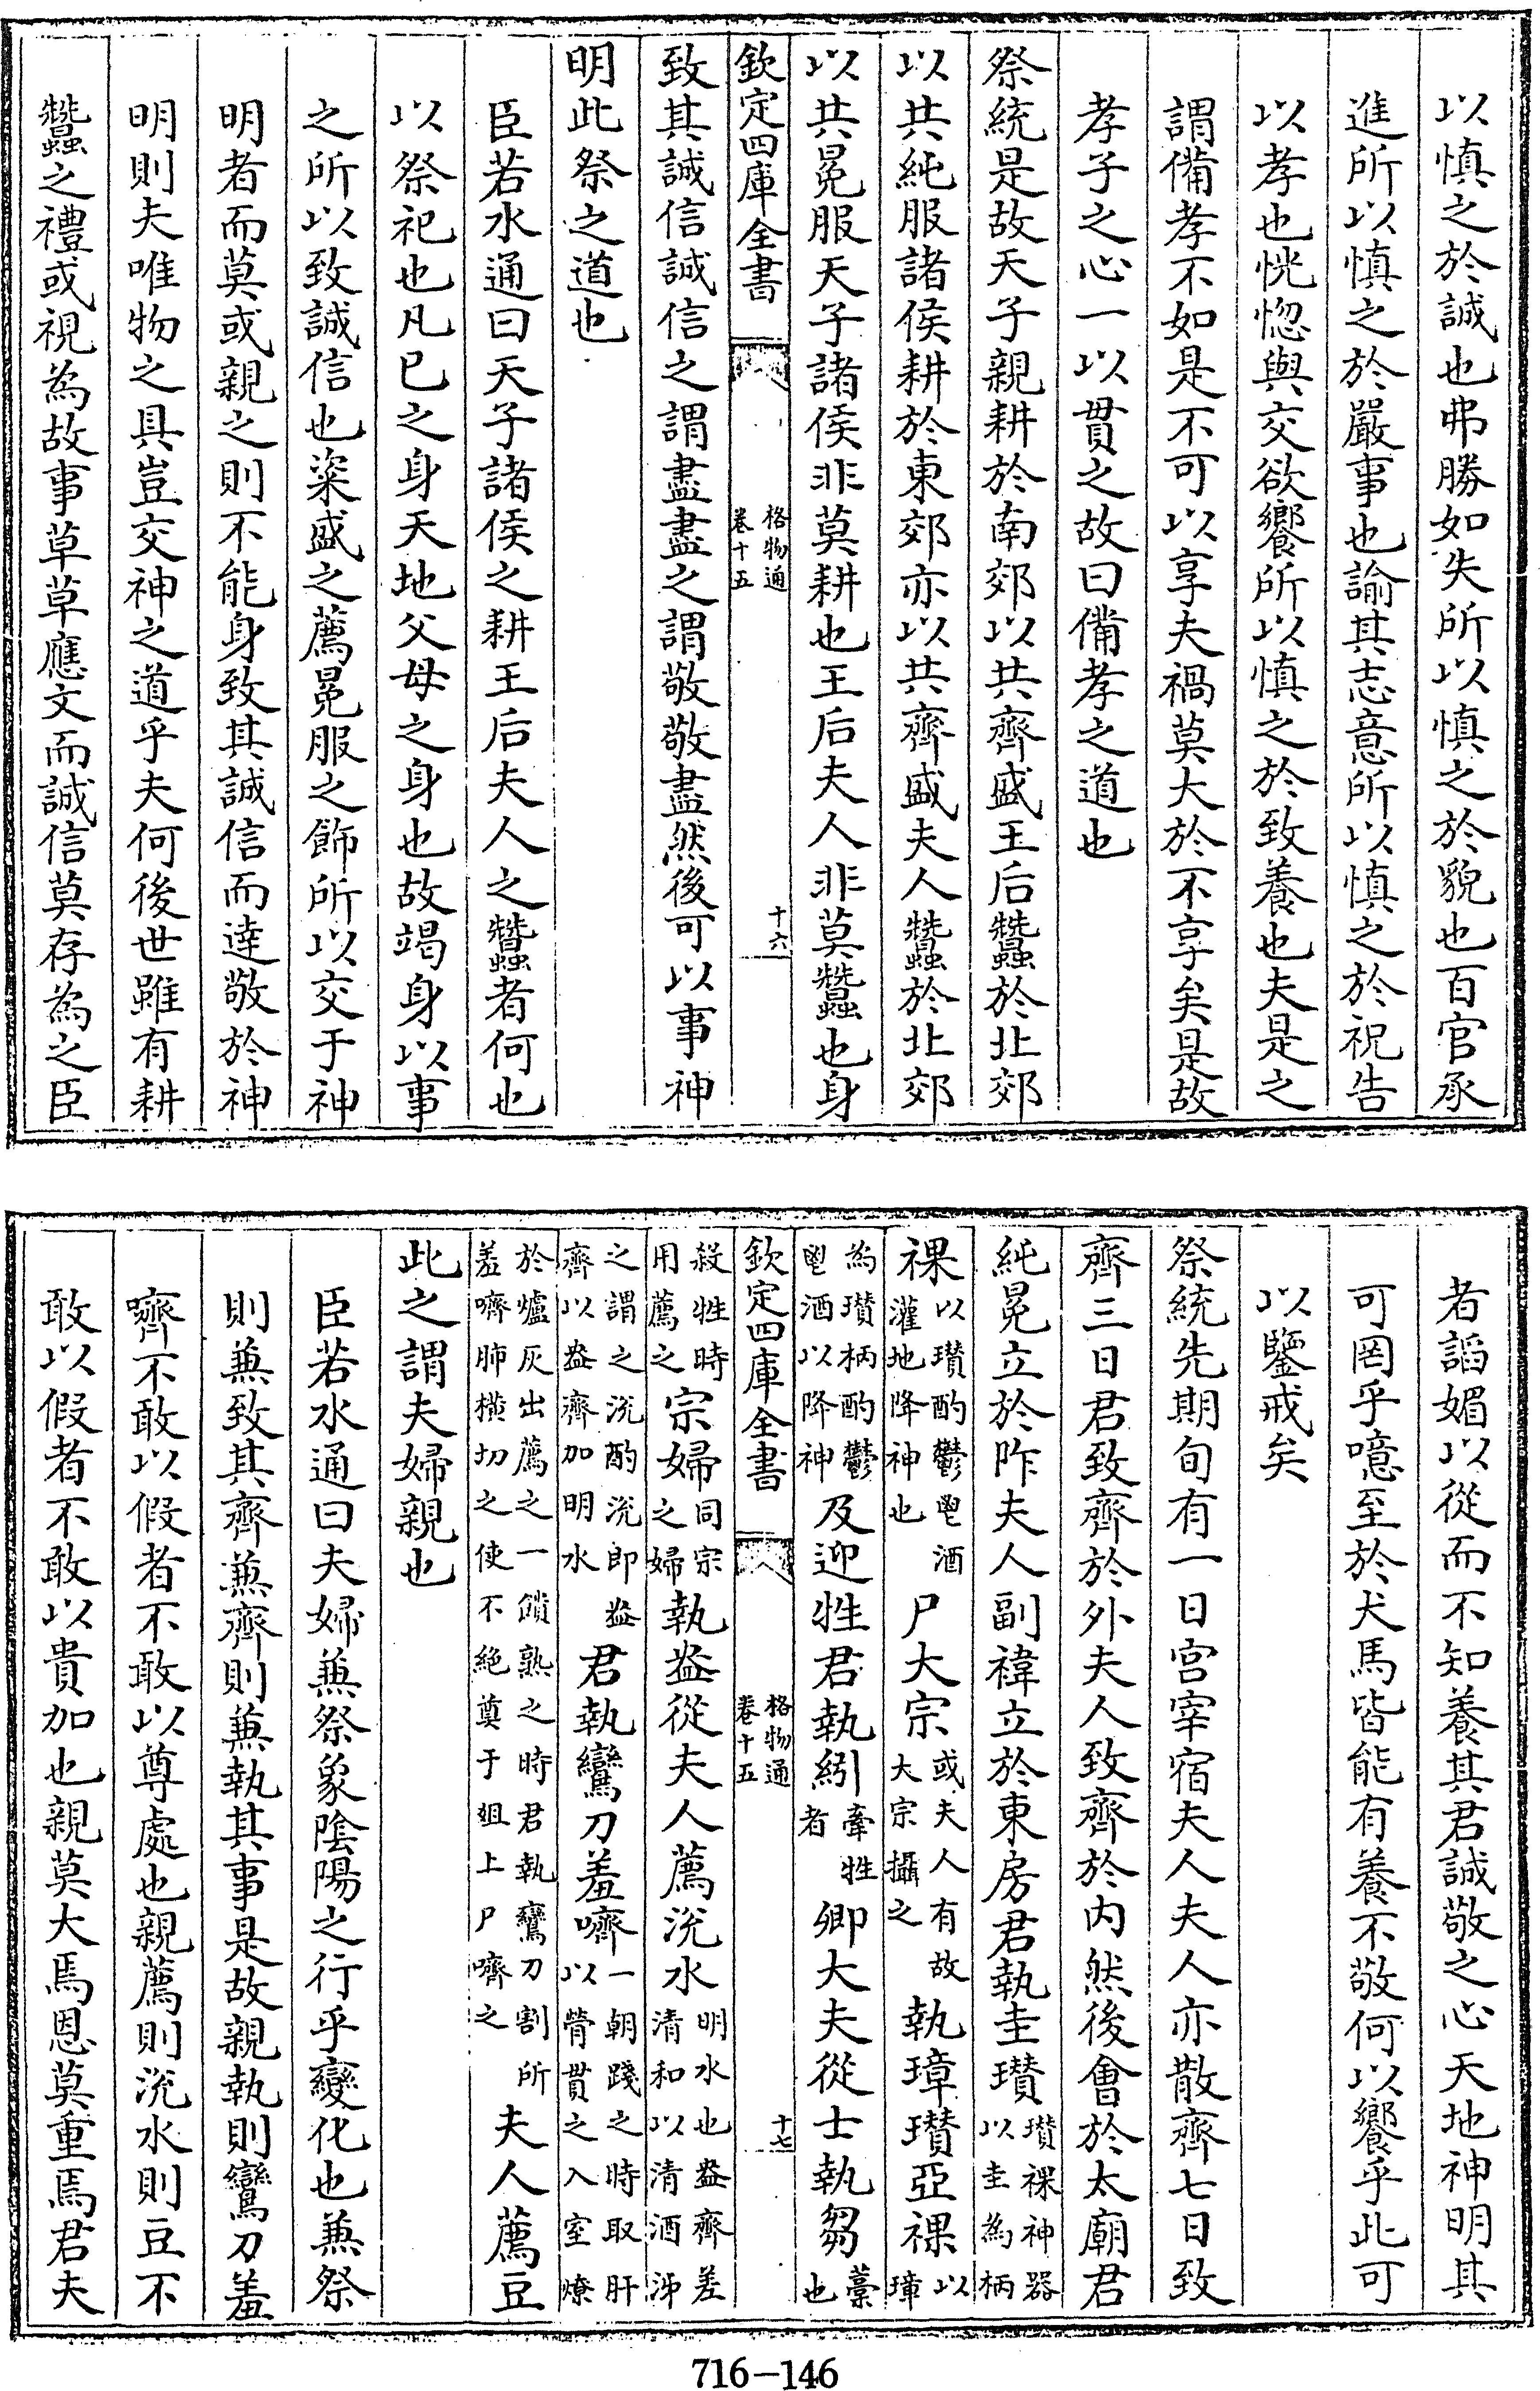 以慎之於誠也弗勝如失所以慎之於貌也百官承
進所以慎之於嚴事也諭其志意所以慎之於祝告
以孝也恍惚與交欲饗所以慎之於致養也夫是之
謂備孝不如是不可以享夫禍莫大於不享矣是故
孝子之心一以貫之故曰備孝之道也
祭統是故天子親耕於南郊以共齊盛王后蠶於北郊
以共純服諸侯耕於東郊亦以共齊盛夫人蠶於北郊
以共冕服天子諸侯非莫耕也王后夫人非莫蠶也身
欽定四庫全書
格物通
卷十五
十六
致其誠信誠信之謂盡盡之謂敬敬盡然後可以事神
明此祭之道也
臣若水通曰天子諸侯之耕王后夫人之蠶者何也
以祭祀也凡已之身天地父母之身也故竭身以事
之所以致誠信也粢盛之薦冕服之飾所以交于神
明者而莫或親之則不能身致其誠信而達敬於神
明則夫唯物之具豈交神之道乎夫何後世雖有耕
蠶之禮或視為故事草草應文而誠信莫存為之臣
者謟媚以從而不知養其君誠敬之心天地神明其
可罔乎噫至於犬馬皆能有養不敬何以饗乎此可
以鑒戒矣
祭統先期旬有一日宫宰宿夫人夫人亦散齊七日致
齊三日君致齊於外夫人致齊於内然後會於太廟君
純冕立於阼夫人副褘立於東房君執圭瓚瓚祼神器以圭為柄
祼以瓚酌鬱鬯酒灌地降神也尸大宗或夫人有故大宗攝之執璋瓚亞祼以璋
為瓚柄酌鬱鬯酒以降神及迎牲君執紖牽牲者卿大夫從士執芻藁也
欽定四庫全書
格物通
卷十五
十七
殺牲時用薦之宗婦同宗之婦執盎從夫人薦涚水明水也盎齊差清和以清酒泲
之謂之涚酌涚即盎齊以盎齊加明水君執鸞刀羞嚌一朝踐之時取肝以膋貫之入室燎
於爐灰出薦之一饋熟之時君執鸞刀割所羞嚌肺横切之使不絶奠于俎上尸嚌之夫人薦豆
此之謂夫婦親也
臣若水通曰夫婦兼祭象陰陽之行乎變化也兼祭
則兼致其齊兼齊則兼執其事是故親執則鸞刀羞
嚌不敢以假者不敢以尊處也親薦則涚水則豆不
敢以假者不敢以貴加也親莫大焉恩莫重焉君夫
716-146